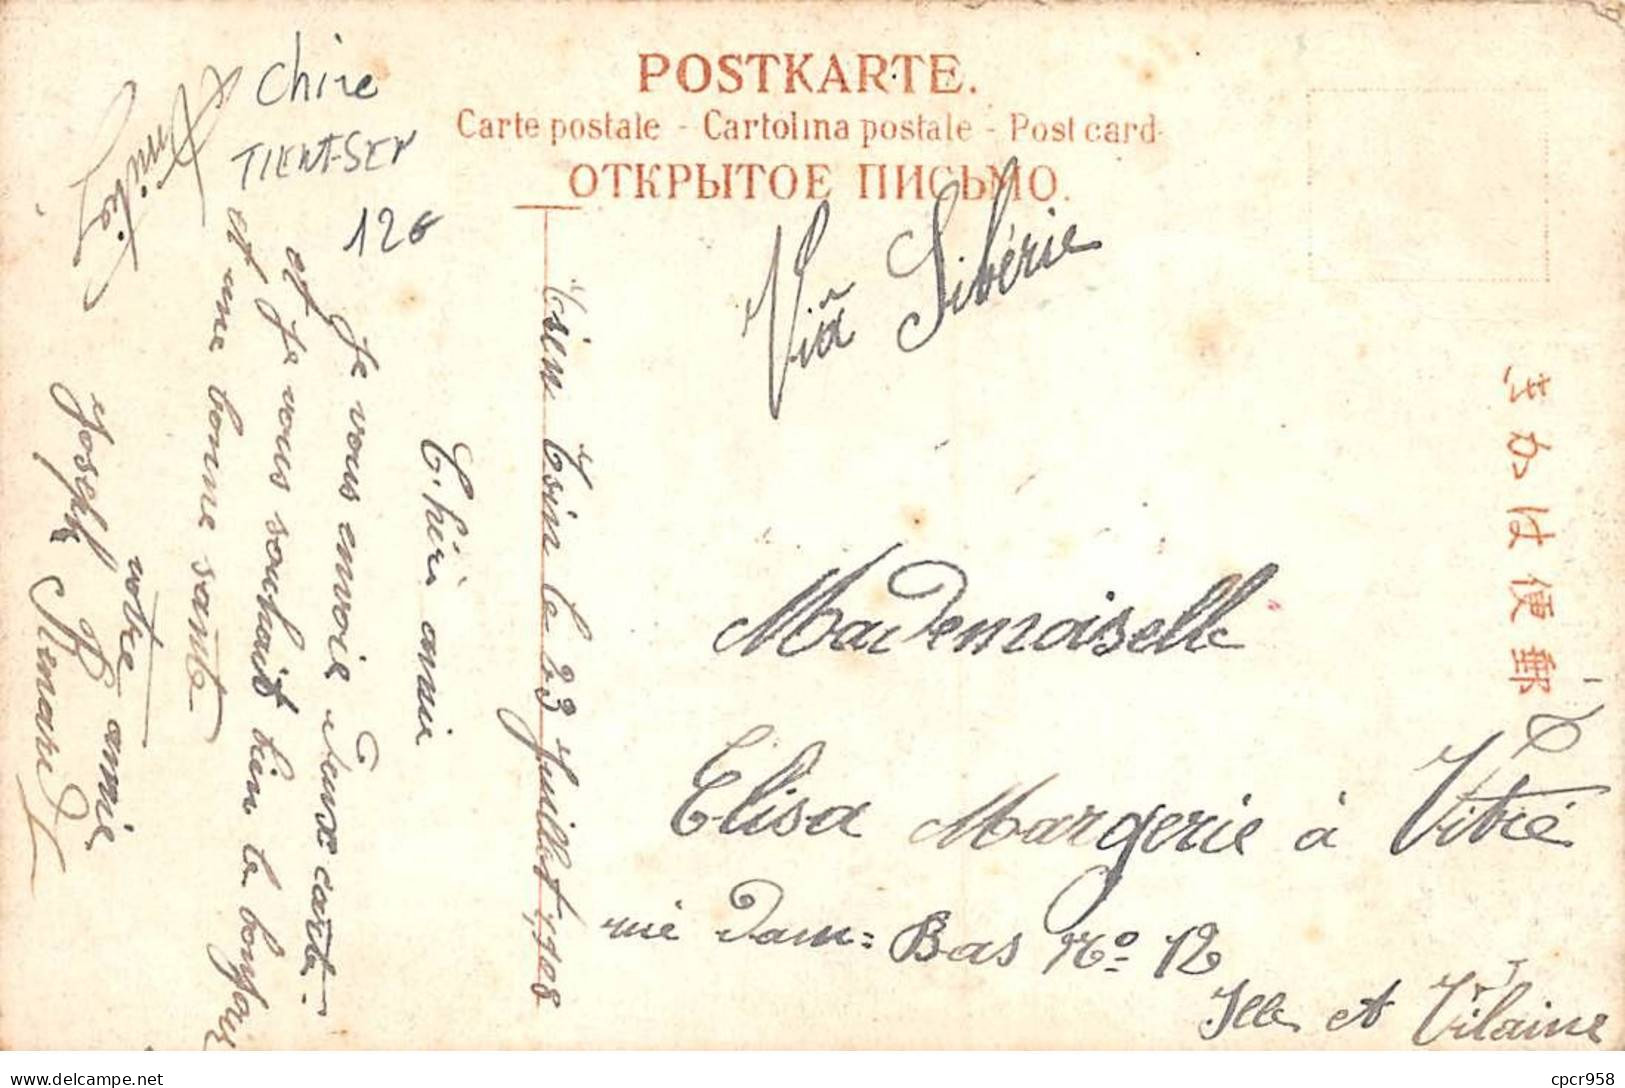 POSTKARTE.
Carte postale - Cartolina postale - Post card
ОТКРЫТОЕ ПИСЬМО.
Chine
TIENT-SEN
12€
Via Sibérie
郵便はかき
Tsien Tsin le 23 Juillet 1908
Chèri amie
Je vous envoie deux carte
et je vous souhait bien le bonjour
et une bonne santé
votre amie
Joseph Renard
Amitié
Mademoiselle
Elisa Margerie à Vitré
rue dam= Bas No 12
Ille et Vilaine
delcampe.net
cpcr958